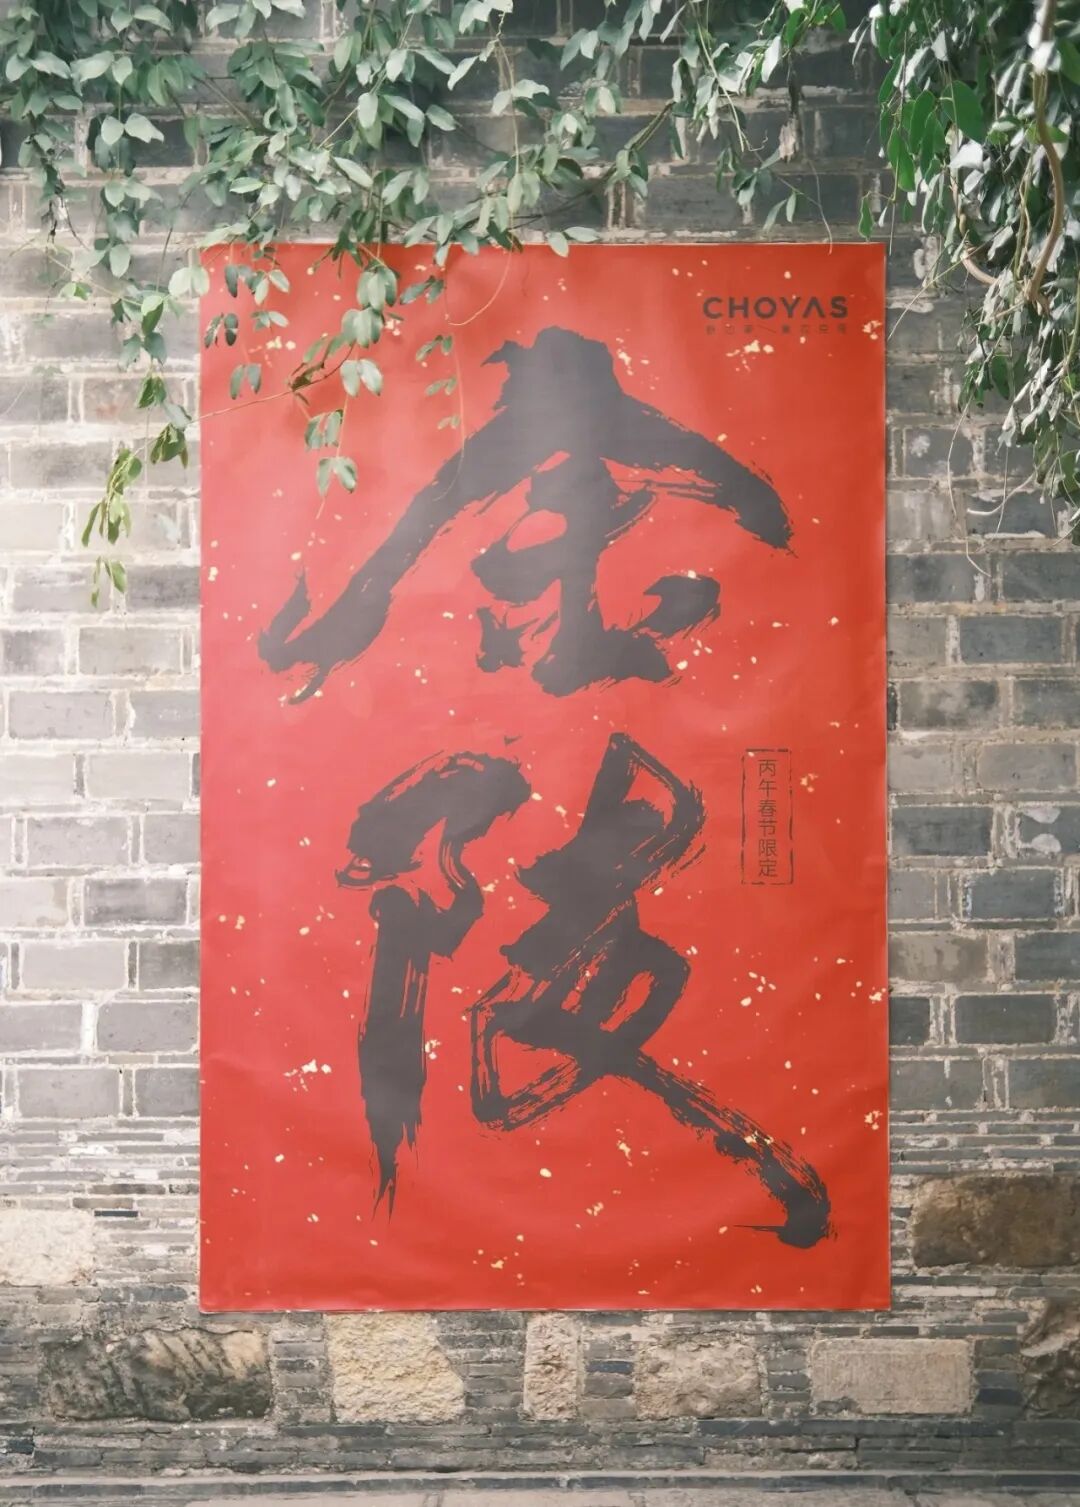 CHOYAS
金
陵
丙午春节限定